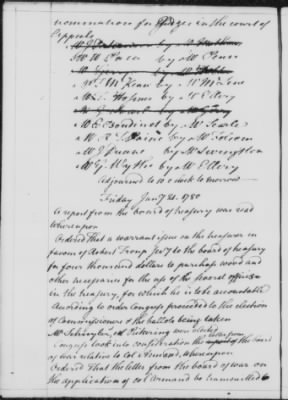 nomination for Judges in the court of
Appeals
Mr W Paca by Mr
Mr T McKean by Mr
Mr Hosmer by Mr Ellery
Mr E Boudinot by Mr Searle
Mr R T Paine by Mr Folsom
Mr J Duane by Mr Livingston
Mr G Wythe by Mr Ellery
Adjourned to 10 oClock to morrow
Friday Jany 21. 1780
A report from the board of treasury was read
whereupon
Ordered That a warrant issue on the treasurer in
favour of Robert Troup Secy to the board of treasury
for four thousand dollars to purchase wood and
other necessaries for the use of the several offices
in the treasury, for which he is to be accountable
According to order Congress proceeded to the election
of Commissioners & the ballots being taken
Mr Schuyler, Mr Pickering were elected
Congress took into consideration the letter from the board
of war relative to Col Armand, whereupon
Ordered That the letter from the board of war on
the application of col Armand be transmitted to